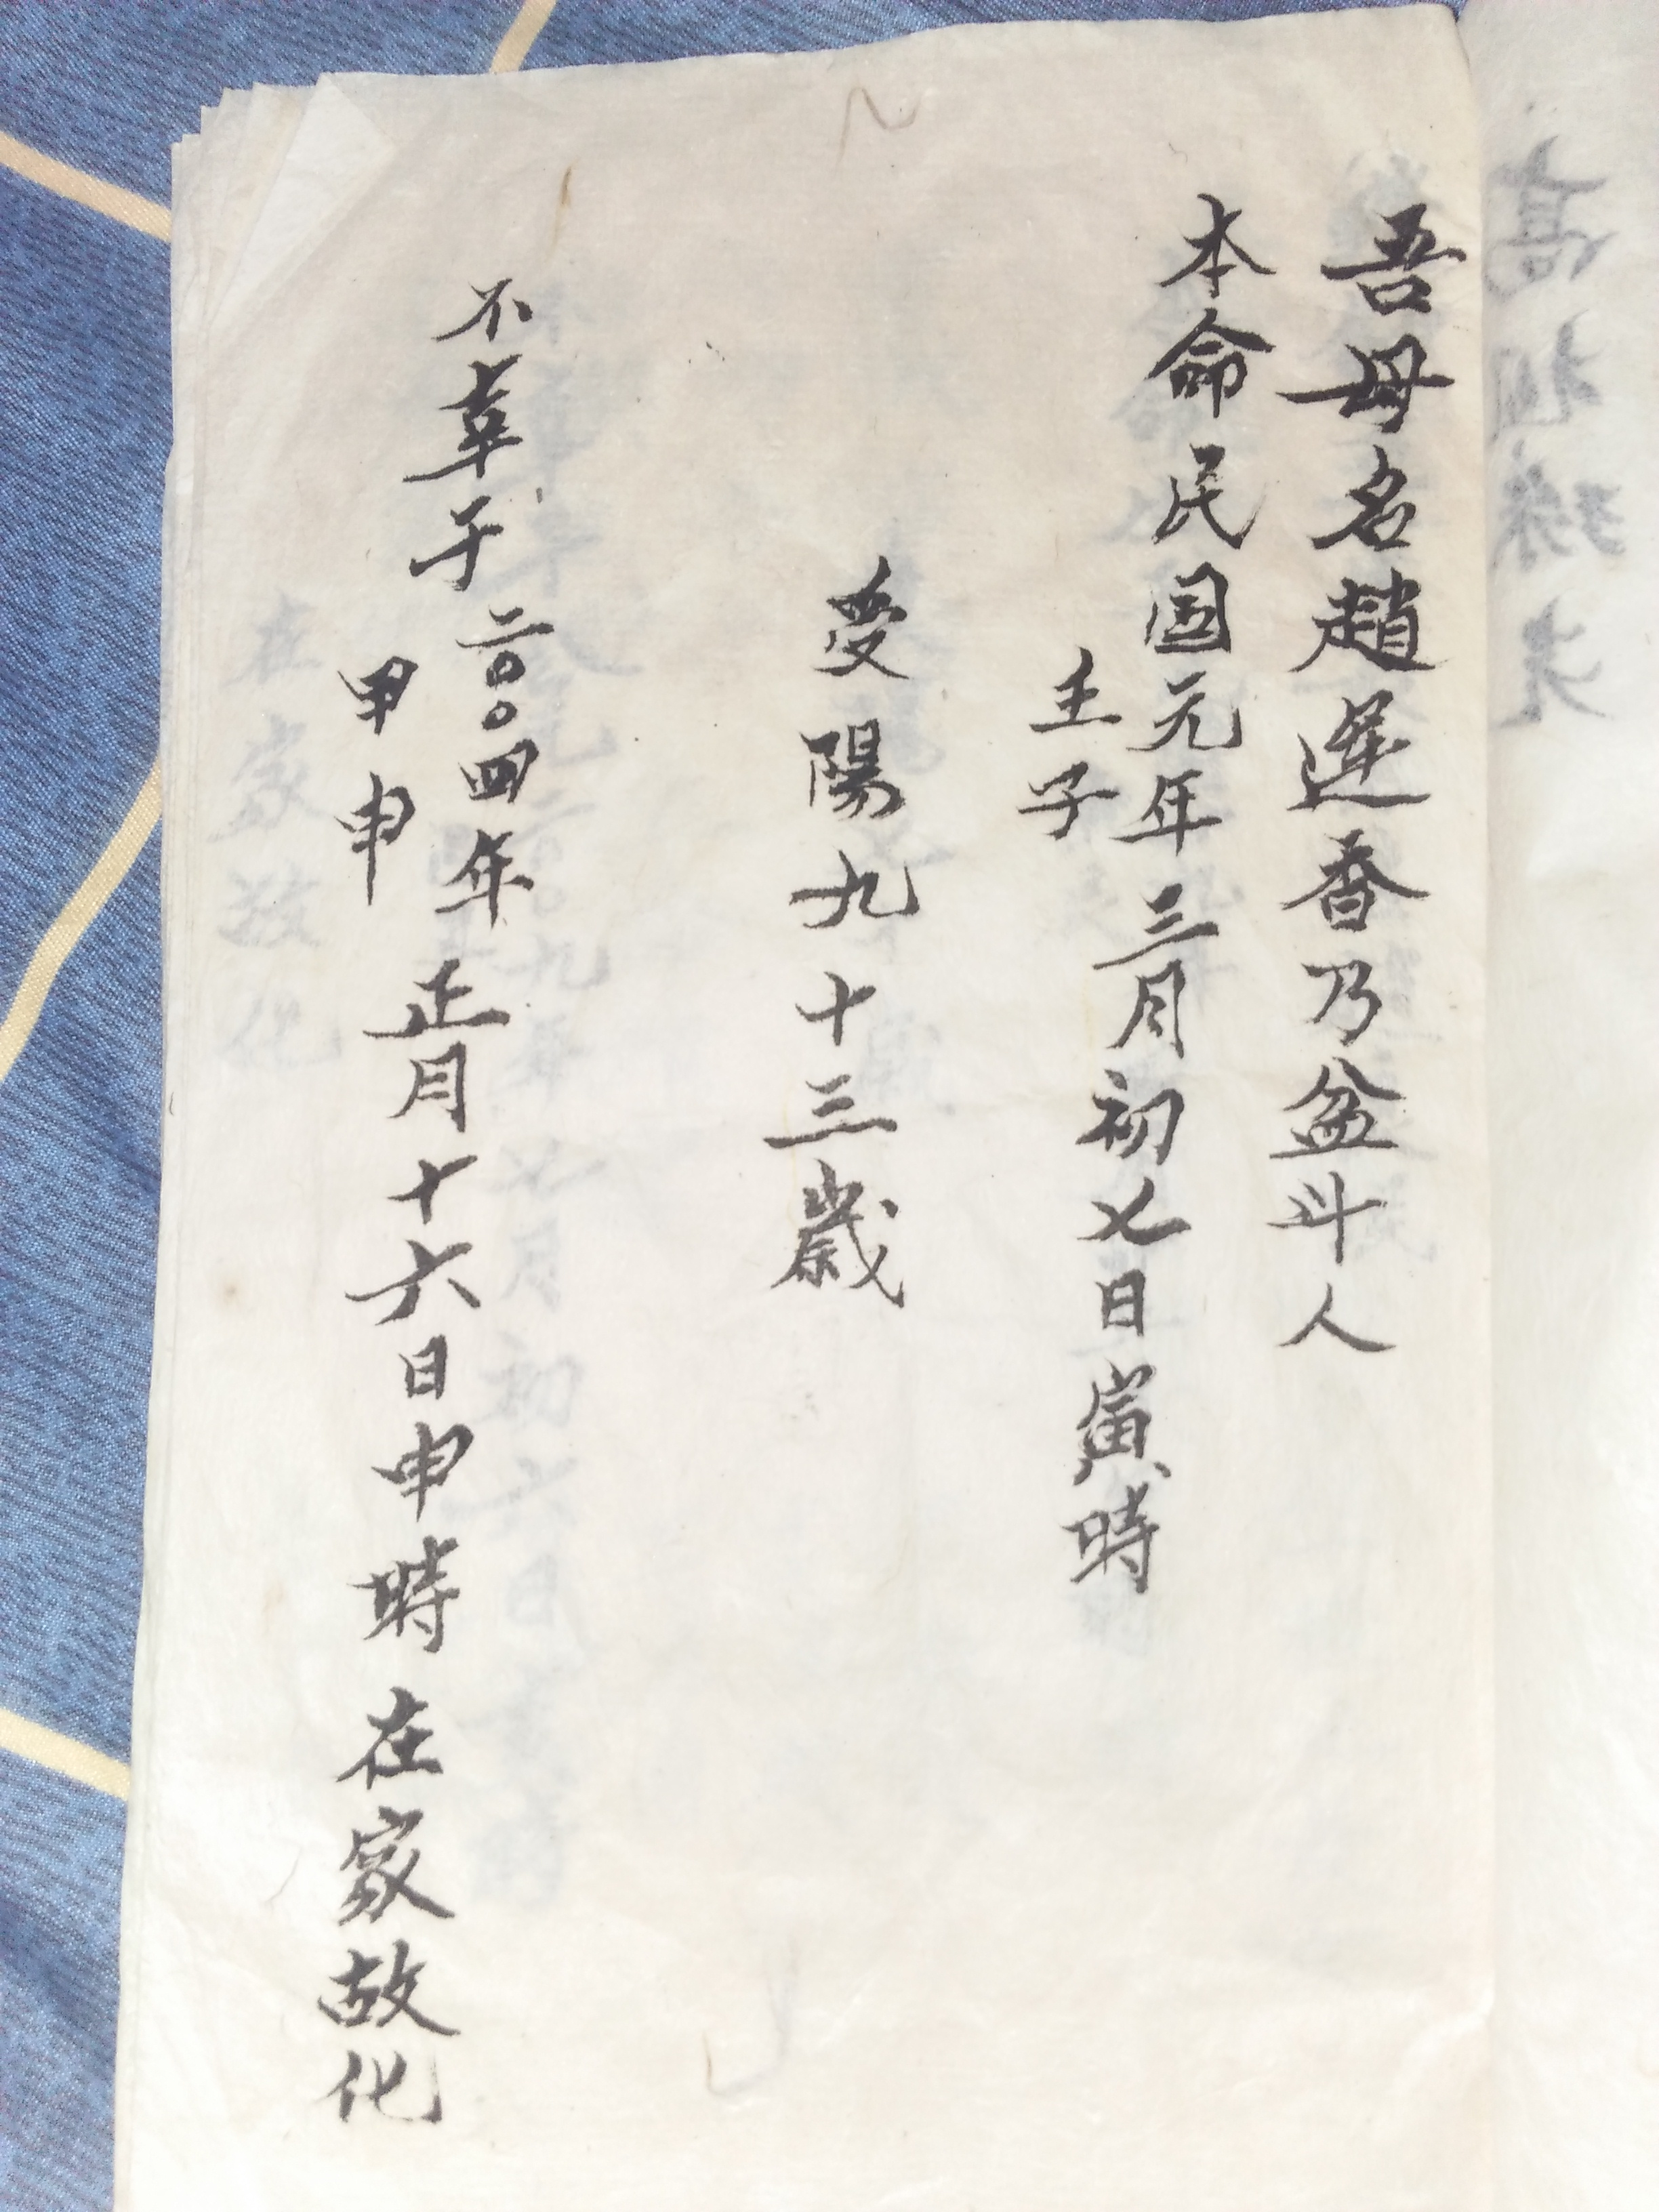 吾母名趙蓮香乃盆斗人
本命民国元年三月初七日寅時
壬子
受陽九十三歲
不幸于二〇〇四年正月十六日申時在家故化
甲申